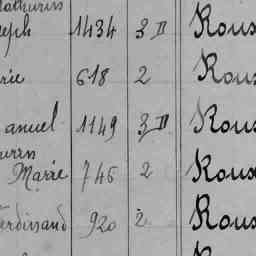 Mathurin
seph 1434 3 D Rous
rie 618 2 Rous
anuel 1149 3 D Rous
urin
Marie 746 2 Rous
Ferdinand 920 2 Rous